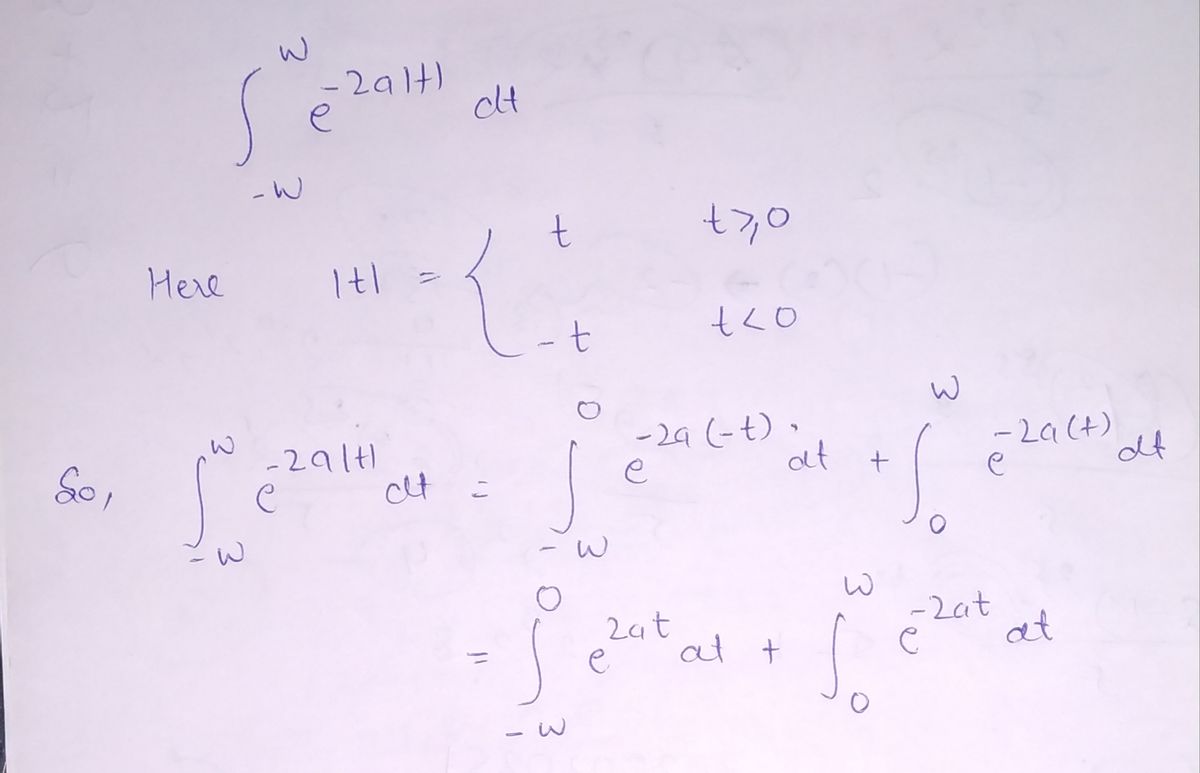 ∫_{-W}^{W} e^{-2a|t|} dt
Here |t| = { t t≥0
-t t<0
So, ∫_{-W}^{W} e^{-2a|t|} dt = ∫_{-W}^{0} e^{-2a(-t)} dt + ∫_{0}^{W} e^{-2a(t)} dt
= ∫_{-W}^{0} e^{2at} dt + ∫_{0}^{W} e^{-2at} dt